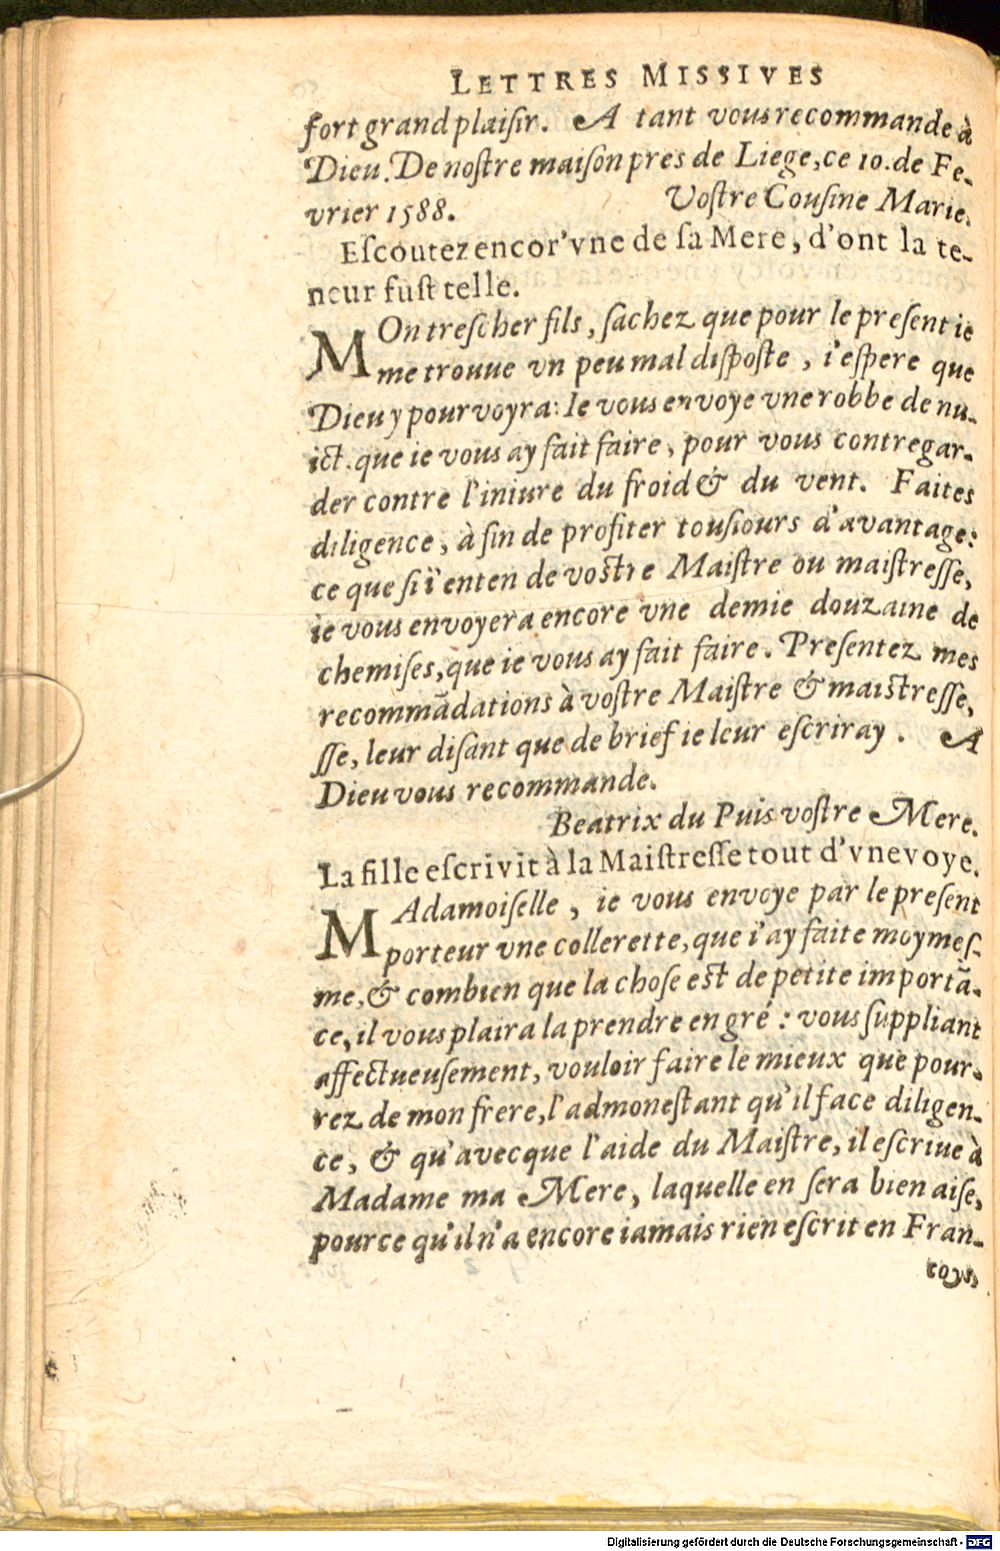 LETTRES MISSIVES
fort grand plaiſir. A tant vous recommande à
Dieu. De noſtre maiſon pres de Liege, ce 10. de Fe-
vrier 1588. Voſtre Couſine Marie.
Eſcoutez encor' vne de ſa Mere, d'ont la te-
neur fuſt telle.
MOn treſcher fils, ſachez que pour le preſent ie
me trouue vn peu mal diſpoſte, i'eſpere que
Dieu y pourvoyra: Ie vous envoye vne robbe de nu-
ict. que ie vous ay fait faire, pour vous contregar-
der contre l'iniure du froid & du vent. Faites
diligence, à fin de profiter touſiours d'avantage:
ce que ſi i'enten de voſtre Maiſtre ou maiſtreſſe,
ie vous envoyera encore vne demie douzaine de
chemiſes, que ie vous ay fait faire. Preſentez mes
recommãdations à voſtre Maiſtre & maiſtreſſe,
ſſe, leur diſant que de brief ie leur eſcriray. A
Dieu vous recommande.
Beatrix du Puis voſtre Mere.
La fille eſcrivit à la Maiſtreſſe tout d'vne voye.
MAdamoiſelle, ie vous envoye par le preſent
porteur vne collerette, que i'ay faite moymeſ-
me, & combien que la choſe eſt de petite importã-
ce, il vous plaira la prendre en gré: vous ſuppliant
affectueuſement, vouloir faire le mieux que pour-
rez de mon frere, l'admoneſtant qu'il face diligen-
ce, & qu'avecque l'aide du Maiſtre, il eſcriue à
Madame ma Mere, laquelle en ſera bien aiſe,
pource qu'il n'a encore iamais rien eſcrit en Fran-
coys
Digitalisierung gefördert durch die Deutsche Forschungsgemeinschaft - DFG